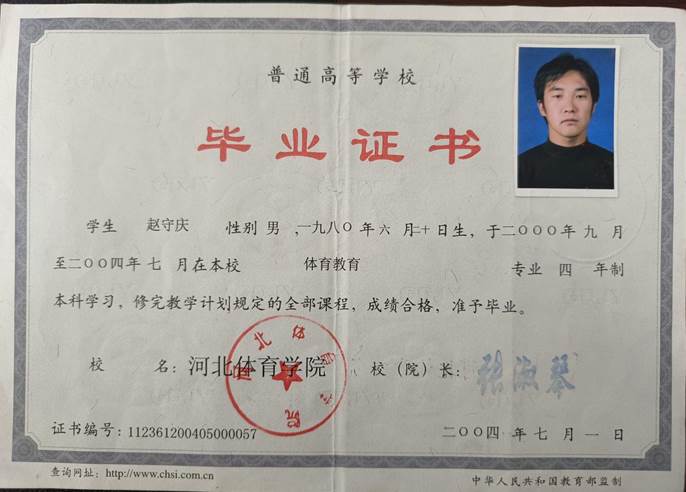 普通高等学校
毕业证书
学生 赵守庆 性别 男 ,一九八〇年六月二十日生，于二〇〇〇年九月
至二〇〇四年七月在本校 体育教育 专业 四 年制
本科学习，修完教学计划规定的全部课程，成绩合格，准予毕业。
校 名：河北体育学院 校（院）长：张淑琴
河北体育学院
证书编号：112361200405000057 二〇〇四年七月一日
查询网址：http://www.chsi.com.cn 中华人民共和国教育部监制